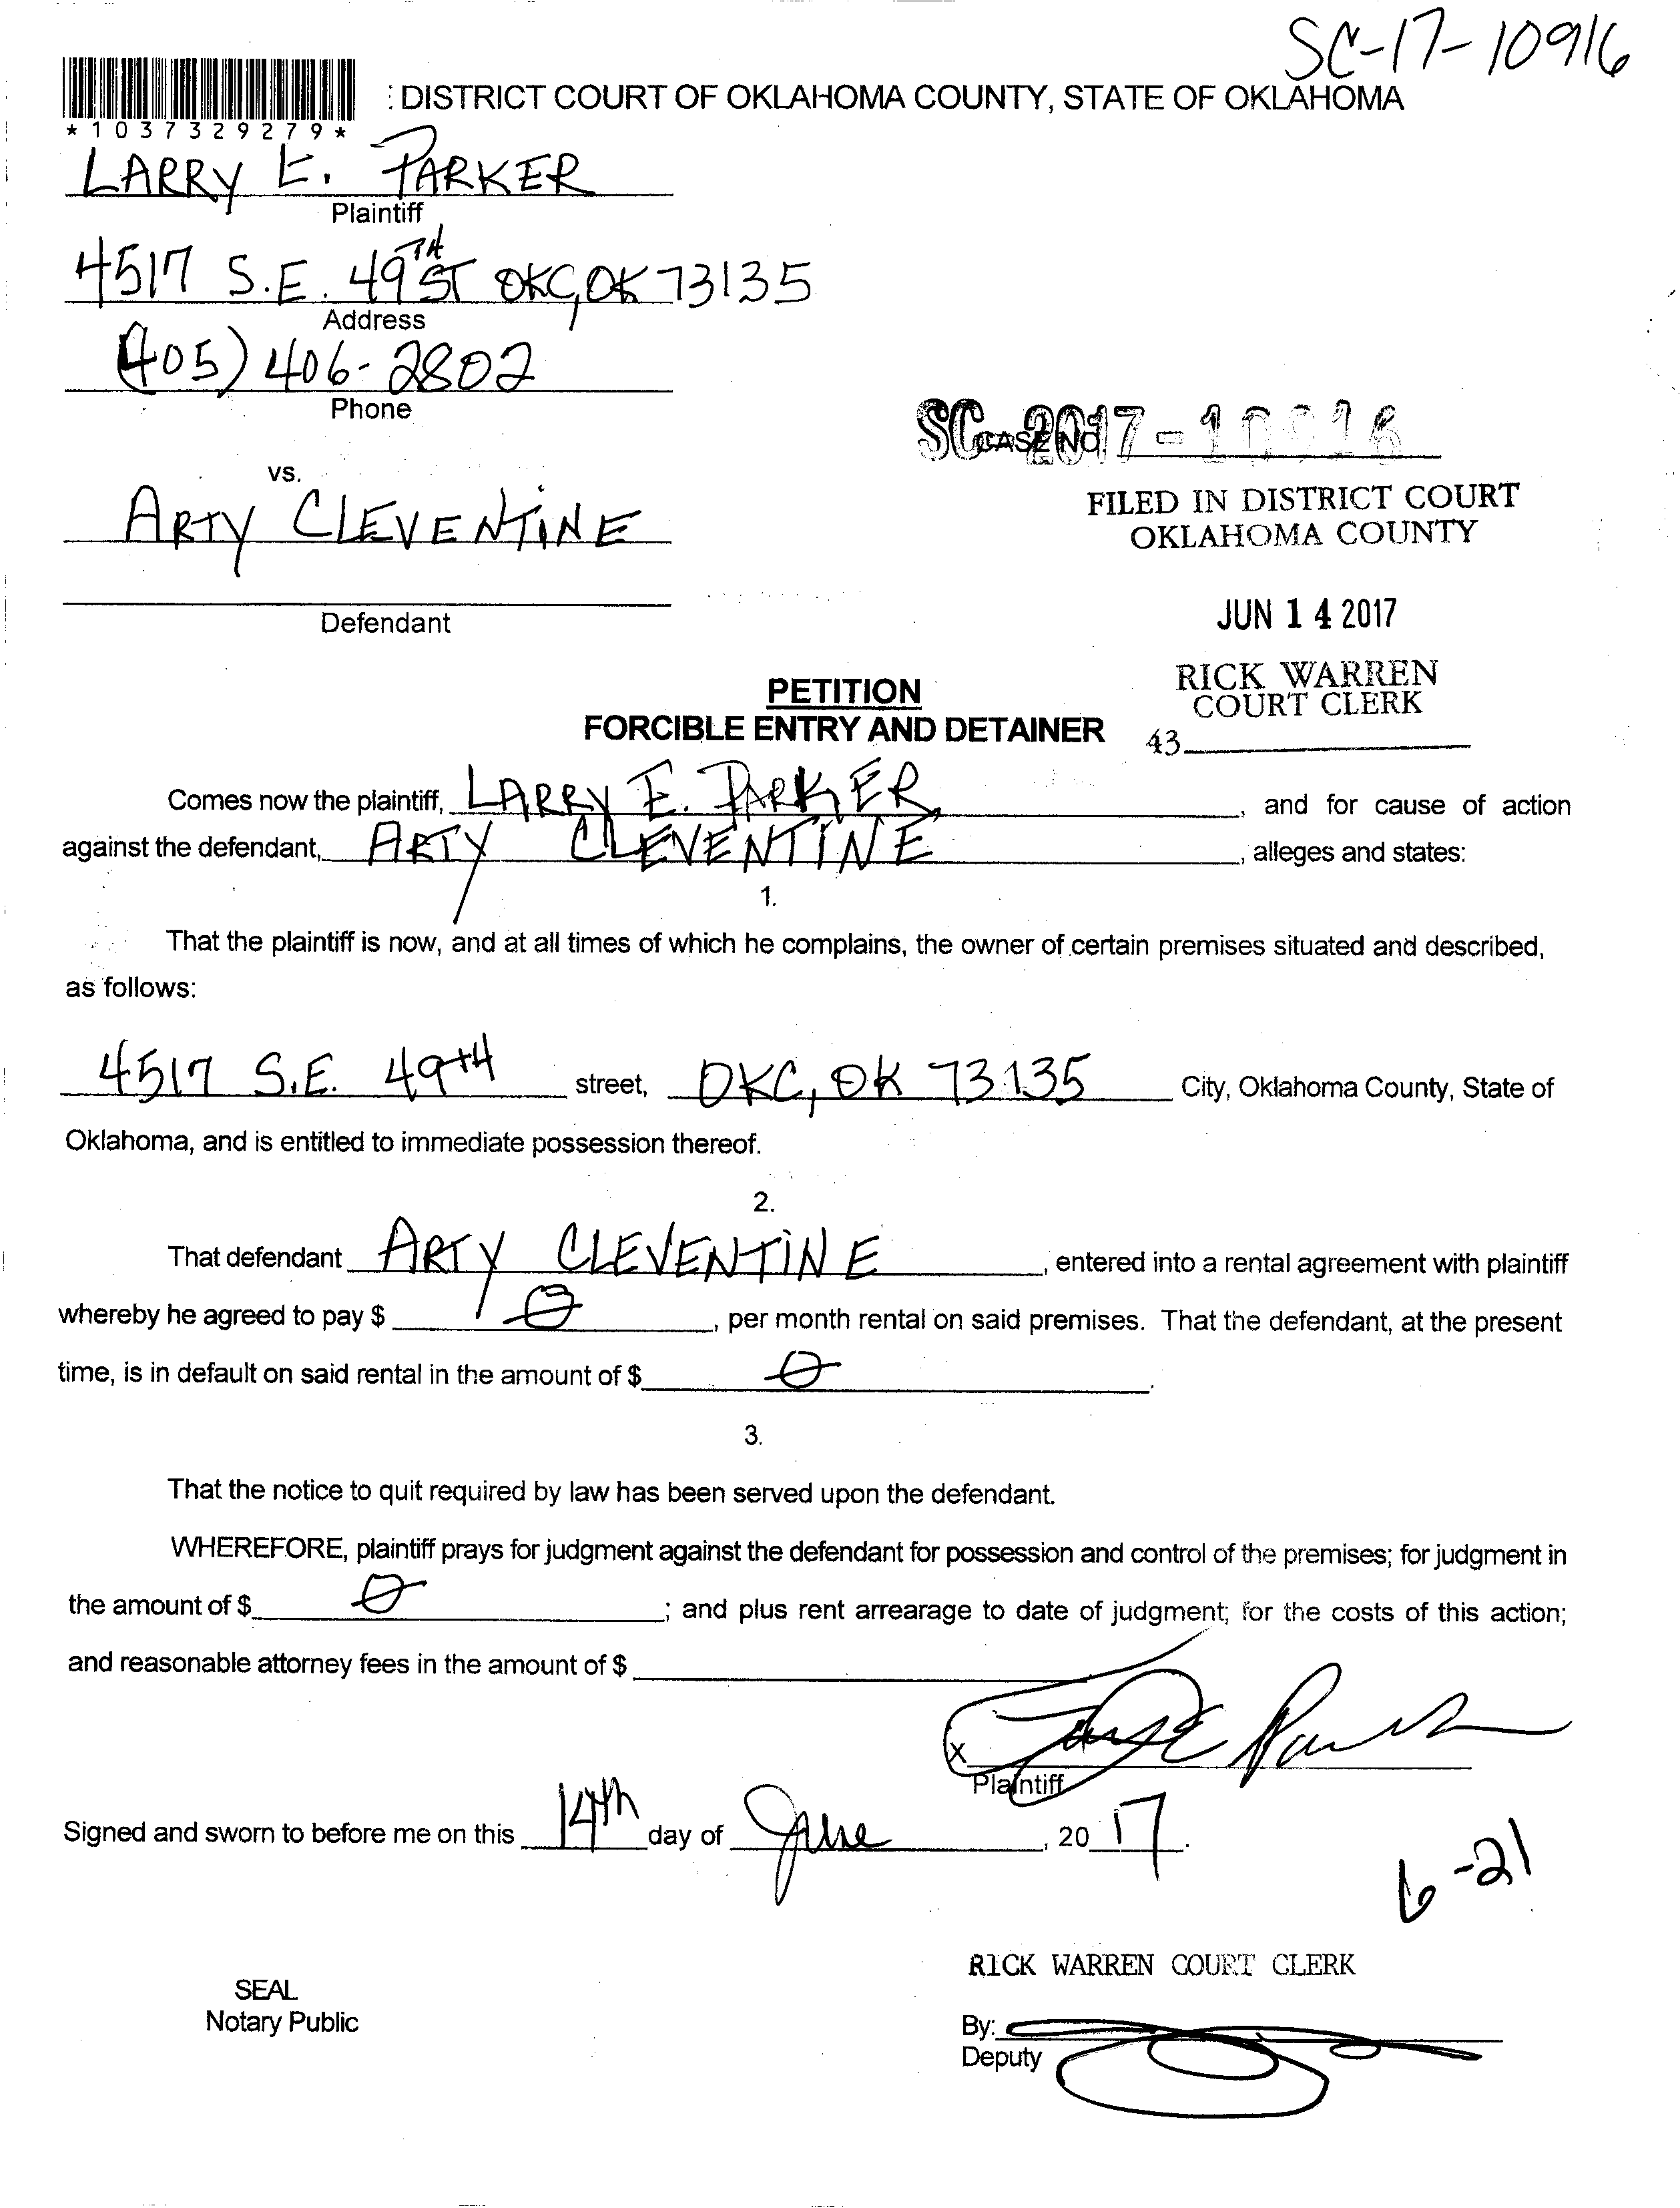 SC-17-10916
: DISTRICT COURT OF OKLAHOMA COUNTY, STATE OF OKLAHOMA
*1037329279*
LARRY E. PARKER
Plaintiff
4517 S.E. 49TH ST OKC, OK 73135
Address
(405) 406-2802
Phone
SC-2017-10916
CASE NO.
vs.
ARTY CLEVENTINE
FILED IN DISTRICT COURT
OKLAHOMA COUNTY
Defendant
JUN 14 2017
RICK WARREN
COURT CLERK
43
PETITION
FORCIBLE ENTRY AND DETAINER
Comes now the plaintiff, LARRY E. PARKER, and for cause of action
against the defendant, ARTY CLEVENTINE, alleges and states:
1.
That the plaintiff is now, and at all times of which he complains, the owner of certain premises situated and described,
as follows:
4517 S.E. 49th street, OKC, OK 73135 City, Oklahoma County, State of
Oklahoma, and is entitled to immediate possession thereof.
2.
That defendant ARTY CLEVENTINE, entered into a rental agreement with plaintiff
whereby he agreed to pay $ 0, per month rental on said premises. That the defendant, at the present
time, is in default on said rental in the amount of $ 0.
3.
That the notice to quit required by law has been served upon the defendant.
WHEREFORE, plaintiff prays for judgment against the defendant for possession and control of the premises; for judgment in
the amount of $ 0; and plus rent arrearage to date of judgment; for the costs of this action;
and reasonable attorney fees in the amount of $
X Larry E Parker
Plaintiff
Signed and sworn to before me on this 14th day of June, 2017.
6-21
RICK WARREN COURT CLERK
SEAL
Notary Public
By:
Deputy